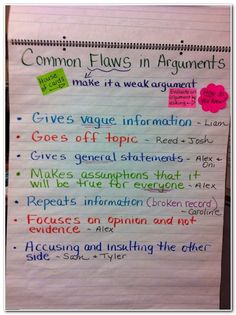 Common Flaws in Arguments
House of cards
make it a weak argument
Evaluate an argument by asking...
How do you know?
• Gives vague information - Liam
• Goes off topic - Reed + Josh
• Gives general statements - Alex +
Oni
• Makes assumptions that it
will be true for everyone - Alex
• Repeats information (broken record)
- Caroline
• Focuses on opinion and not
evidence - Alex
• Accusing and insulting the other
side - Sam + Tyler